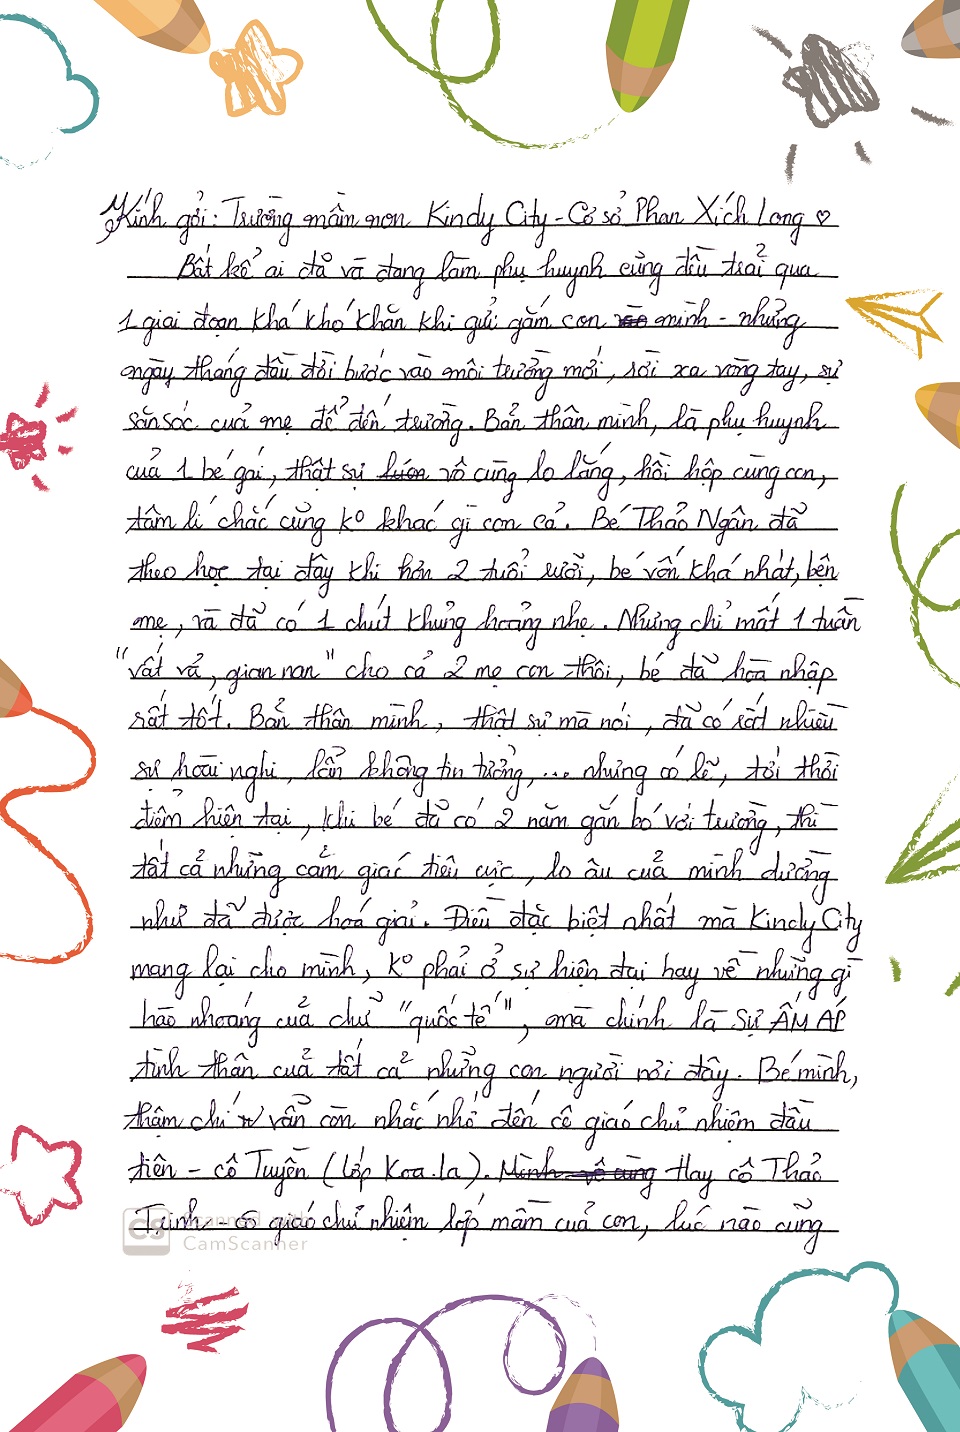 Kính gởi: Trường mầm non Kindy City - Cơ sở Phan Xích Long ♡
Bất kể ai đã và đang làm phụ huynh cũng đều trải qua
1 giai đoạn khá khó khăn khi gửi gắm con mình - những
ngày tháng đầu đời bước vào môi trường mới, rời xa vòng tay, sự
săn sóc của mẹ để đến trường. Bản thân mình, là phụ huynh
của 1 bé gái, thật sự luôn vô cùng lo lắng, hồi hộp cùng con,
tâm lí chắc cũng k° khác gì con cả. Bé Thảo Ngân đã
theo học tại đây khi hơn 2 tuổi rưỡi, bé vốn khá nhát, bện
mẹ, và đã có 1 chút khủng hoảng nhẹ. Nhưng chỉ mất 1 tuần
"vất vả, gian nan" cho cả 2 mẹ con thôi, bé đã hoà nhập
rất tốt. Bản thân mình, thật sự mà nói, đã có rất nhiều
sự hoài nghi, lẫn không tin tưởng,... nhưng có lẽ, tới thời
điểm hiện tại, khi bé đã có 2 năm gắn bó với trường, thì
tất cả những cảm giác tiêu cực, lo âu của mình dường
như đã được hoá giải. Điều đặc biệt nhất mà Kindy City
mang lại cho mình, k° phải ở sự hiện đại hay về những gì
hào nhoáng của chữ "quốc tế", mà chính là Sự ẤM ÁP
tình thân của tất cả những con người nơi đây. Bé mình,
thậm chí vẫn còn nhắc nhở đến cô giáo chủ nhiệm đầu
tiên - cô Tuyền (lớp Koa.la). Mình vô cùng Hay cô Thảo
Trinh - cô giáo chủ nhiệm lớp mầm của con, lúc nào cũng
CS Scanned with
CamScanner